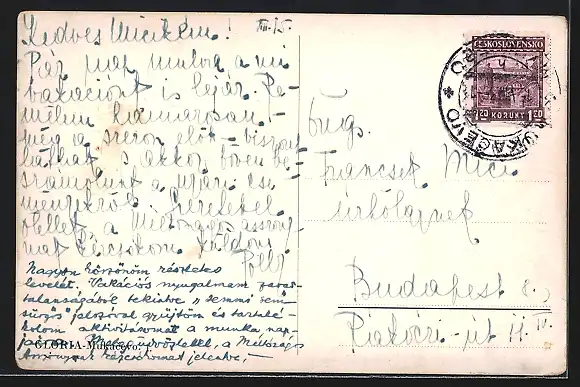 Kedves Micikém!
Pár nap mulva a mi
vakációnk is lejár. Re-
mélem hamarosan
még a szezon előtt viszont
láthatjuk s akkor bőven be-
számolunk a nyári ese-
ményekről. Szeretettel
ölellek, a Méltóságos asszony-
nak kézcsókom. Üdvözöl
Polly
Nagyon köszönöm részletes
levelét. Vakációs nyugalmam zavar-
talanságából tekintve „semmi sem
sürgős" jelszóval gyűjtöm és tartalé-
kolom aktivitásomat a munka nap-
jaira. Meleg üdvözlettel, a Méltóságos
Asszonynak kézcsókomat jelentve,
GLORIA-Mukačevo.
ČESKOSLOVENSKO
1·20 KORUNY 1·20
MUKAČEVO
Francsek Mici
úrhölgynek
Budapest
Rákóczi-út 11. IV.